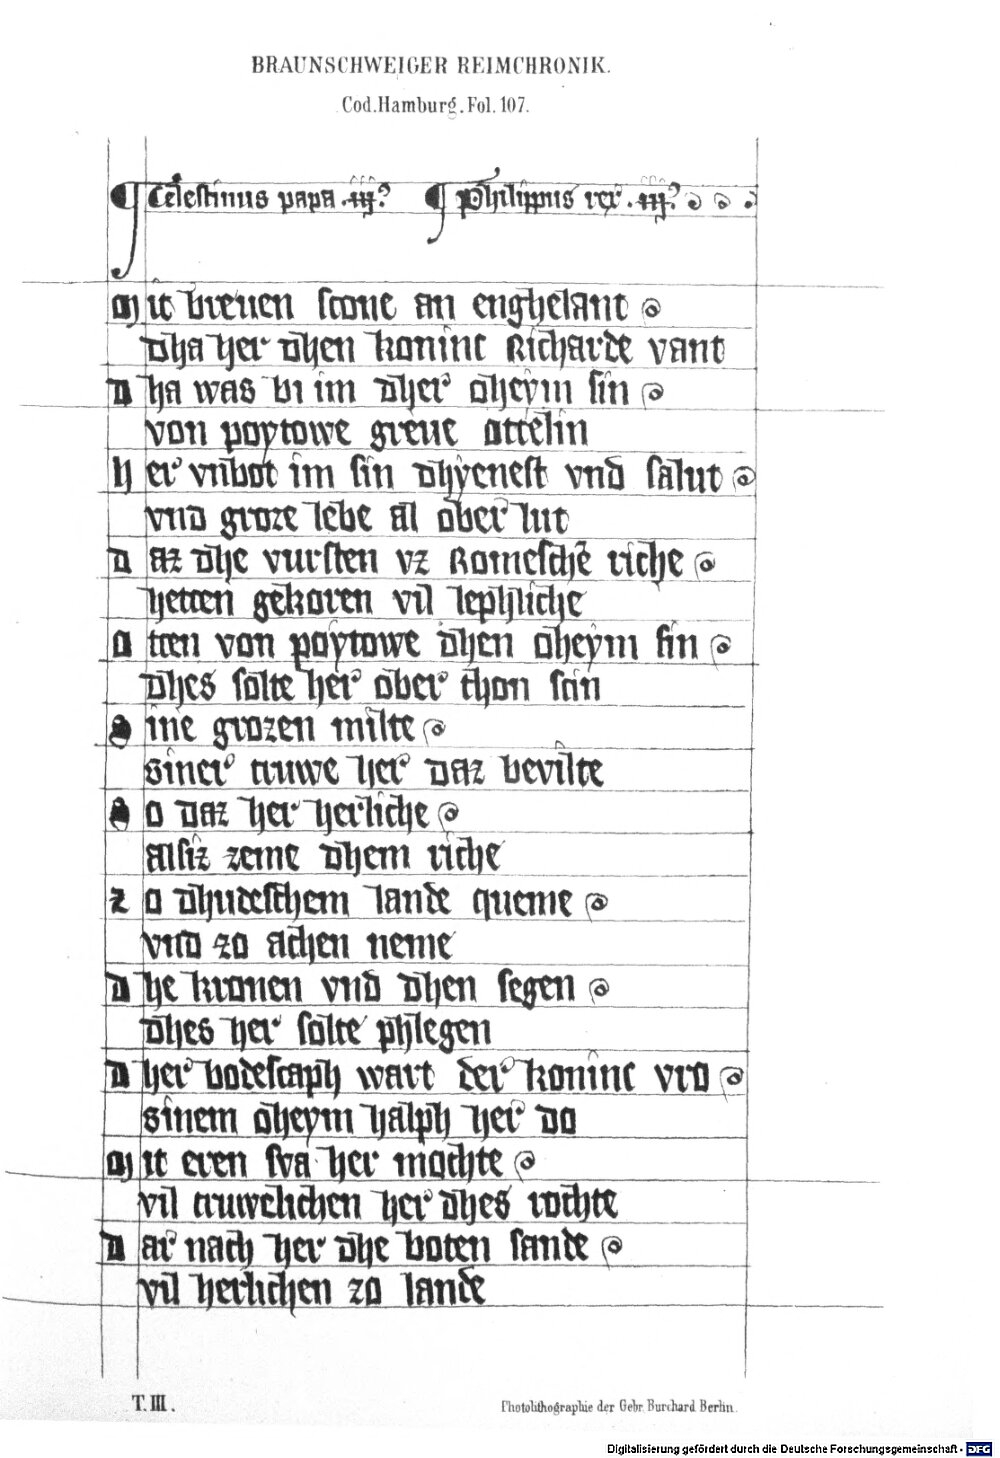 BRAUNSCHWEIGER REIMCHRONIK.
Cod. Hamburg. Fol. 107.
¶ Celestinus papa .iij.° ¶ Philippus rex .iij.°
Mit breuen scone an enghelant
Dha her dhen koninc Richarde vant
Dha was bi im dher oheym sin
von poytowe greue ottelin
Her vnbot im sin dhyenest vnd salut
vnd groze lebe al ober lut
Daz dhe vursten vz Romeschē riche
hetten gekoren vil lephliche
Otten von poytowe dhen oheym sin
Dhes solte her ober thon scin
Sine grozen milte
siner truwe her daz bevilte
So daz her herliche
alsiz zeme dhem riche
Zo dhudeschem lande queme
vnd zo achen neme
Dhe kronen vnd dhen segen
Dhes her solte phlegen
Dher bodescaph wart der koninc vro
sinem oheym halph her do
Mit eren sva her mochte
vil truwelichen her dhes rochte
Dar nach her dhe boten sande
vil herlichen zo lande
T. III.
Photolithographie der Gebr. Burchard Berlin.
Digitalisierung gefördert durch die Deutsche Forschungsgemeinschaft - DFG